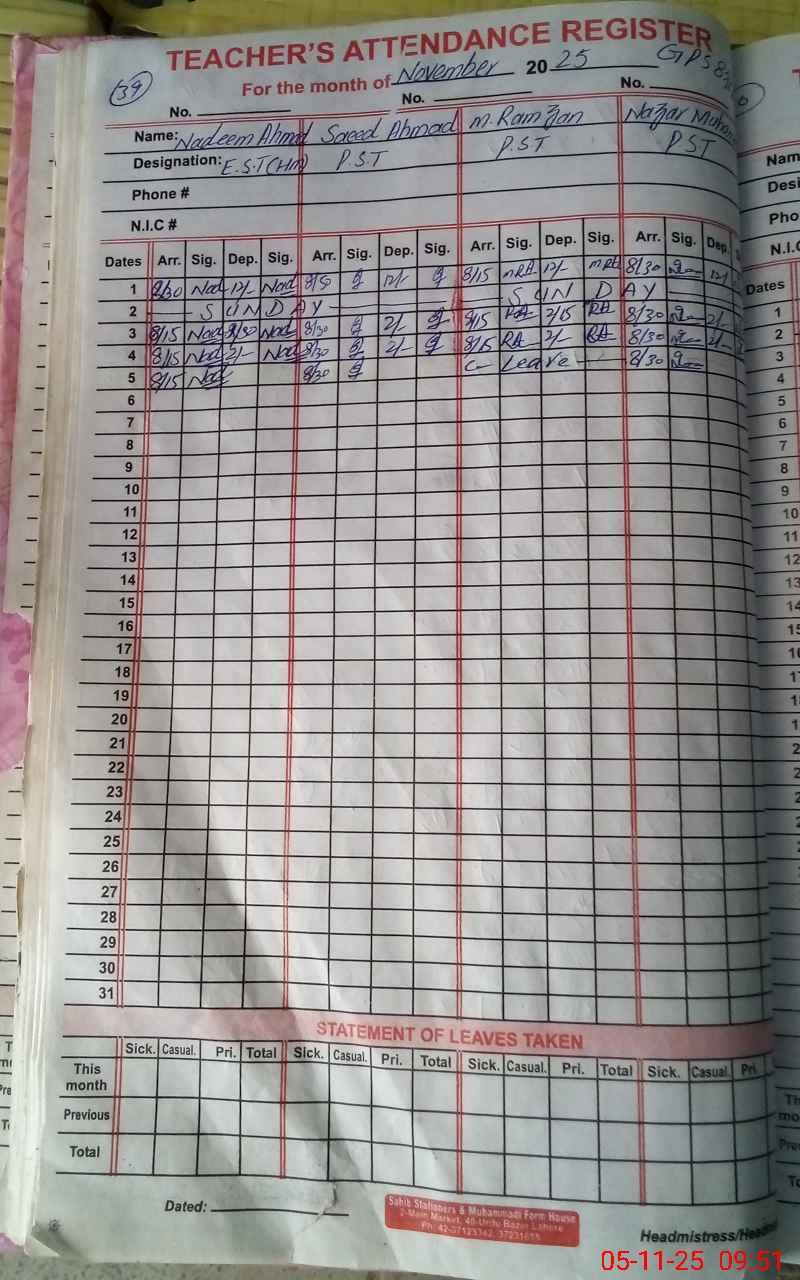 TEACHER'S ATTENDANCE REGISTER
39 For the month of November 2025 GPS
No. No. No.
Name: Nadeem Ahmad Saeed Ahmad M. Ramzan Nazar
Designation: E.S.T (HM) P.S.T P.S.T PST
Phone #
N.I.C #
Dates Arr. Sig. Dep. Sig. Arr. Sig. Dep. Sig. Arr. Sig. Dep. Sig. Arr. Sig. Dep.
1 8/30 Nad 12/- Nad 12/- 8/15 MRA 12/- MRA 8/30 12/-
2 SUNDAY SUNDAY
3 8/15 Nad Nad 8/30 2/- 8/15 RA 2/15 RA 8/30 2/-
4 8/15 Nad 2/- Nad 8/30 2/- 8/15 RA 2/- RA 8/30 2/-
5 8/15 Nad 8/30 C- Leave 8/30
6
7
8
9
10
11
12
13
14
15
16
17
18
19
20
21
22
23
24
25
26
27
28
29
30
31
STATEMENT OF LEAVES TAKEN
Sick. Casual. Pri. Total Sick. Casual. Pri. Total Sick. Casual. Pri. Total Sick. Casual. Pri.
This month
Previous
Total
Dated:
Sahib Stationers & Muhammadi Form House
2-Main Market, 40-Urdu Bazar Lahore
Headmistress/
Nam
Desi
Pho
N.I.C
Dates
1
2
3
4
5
6
7
8
9
10
11
12
13
05-11-25 09:51